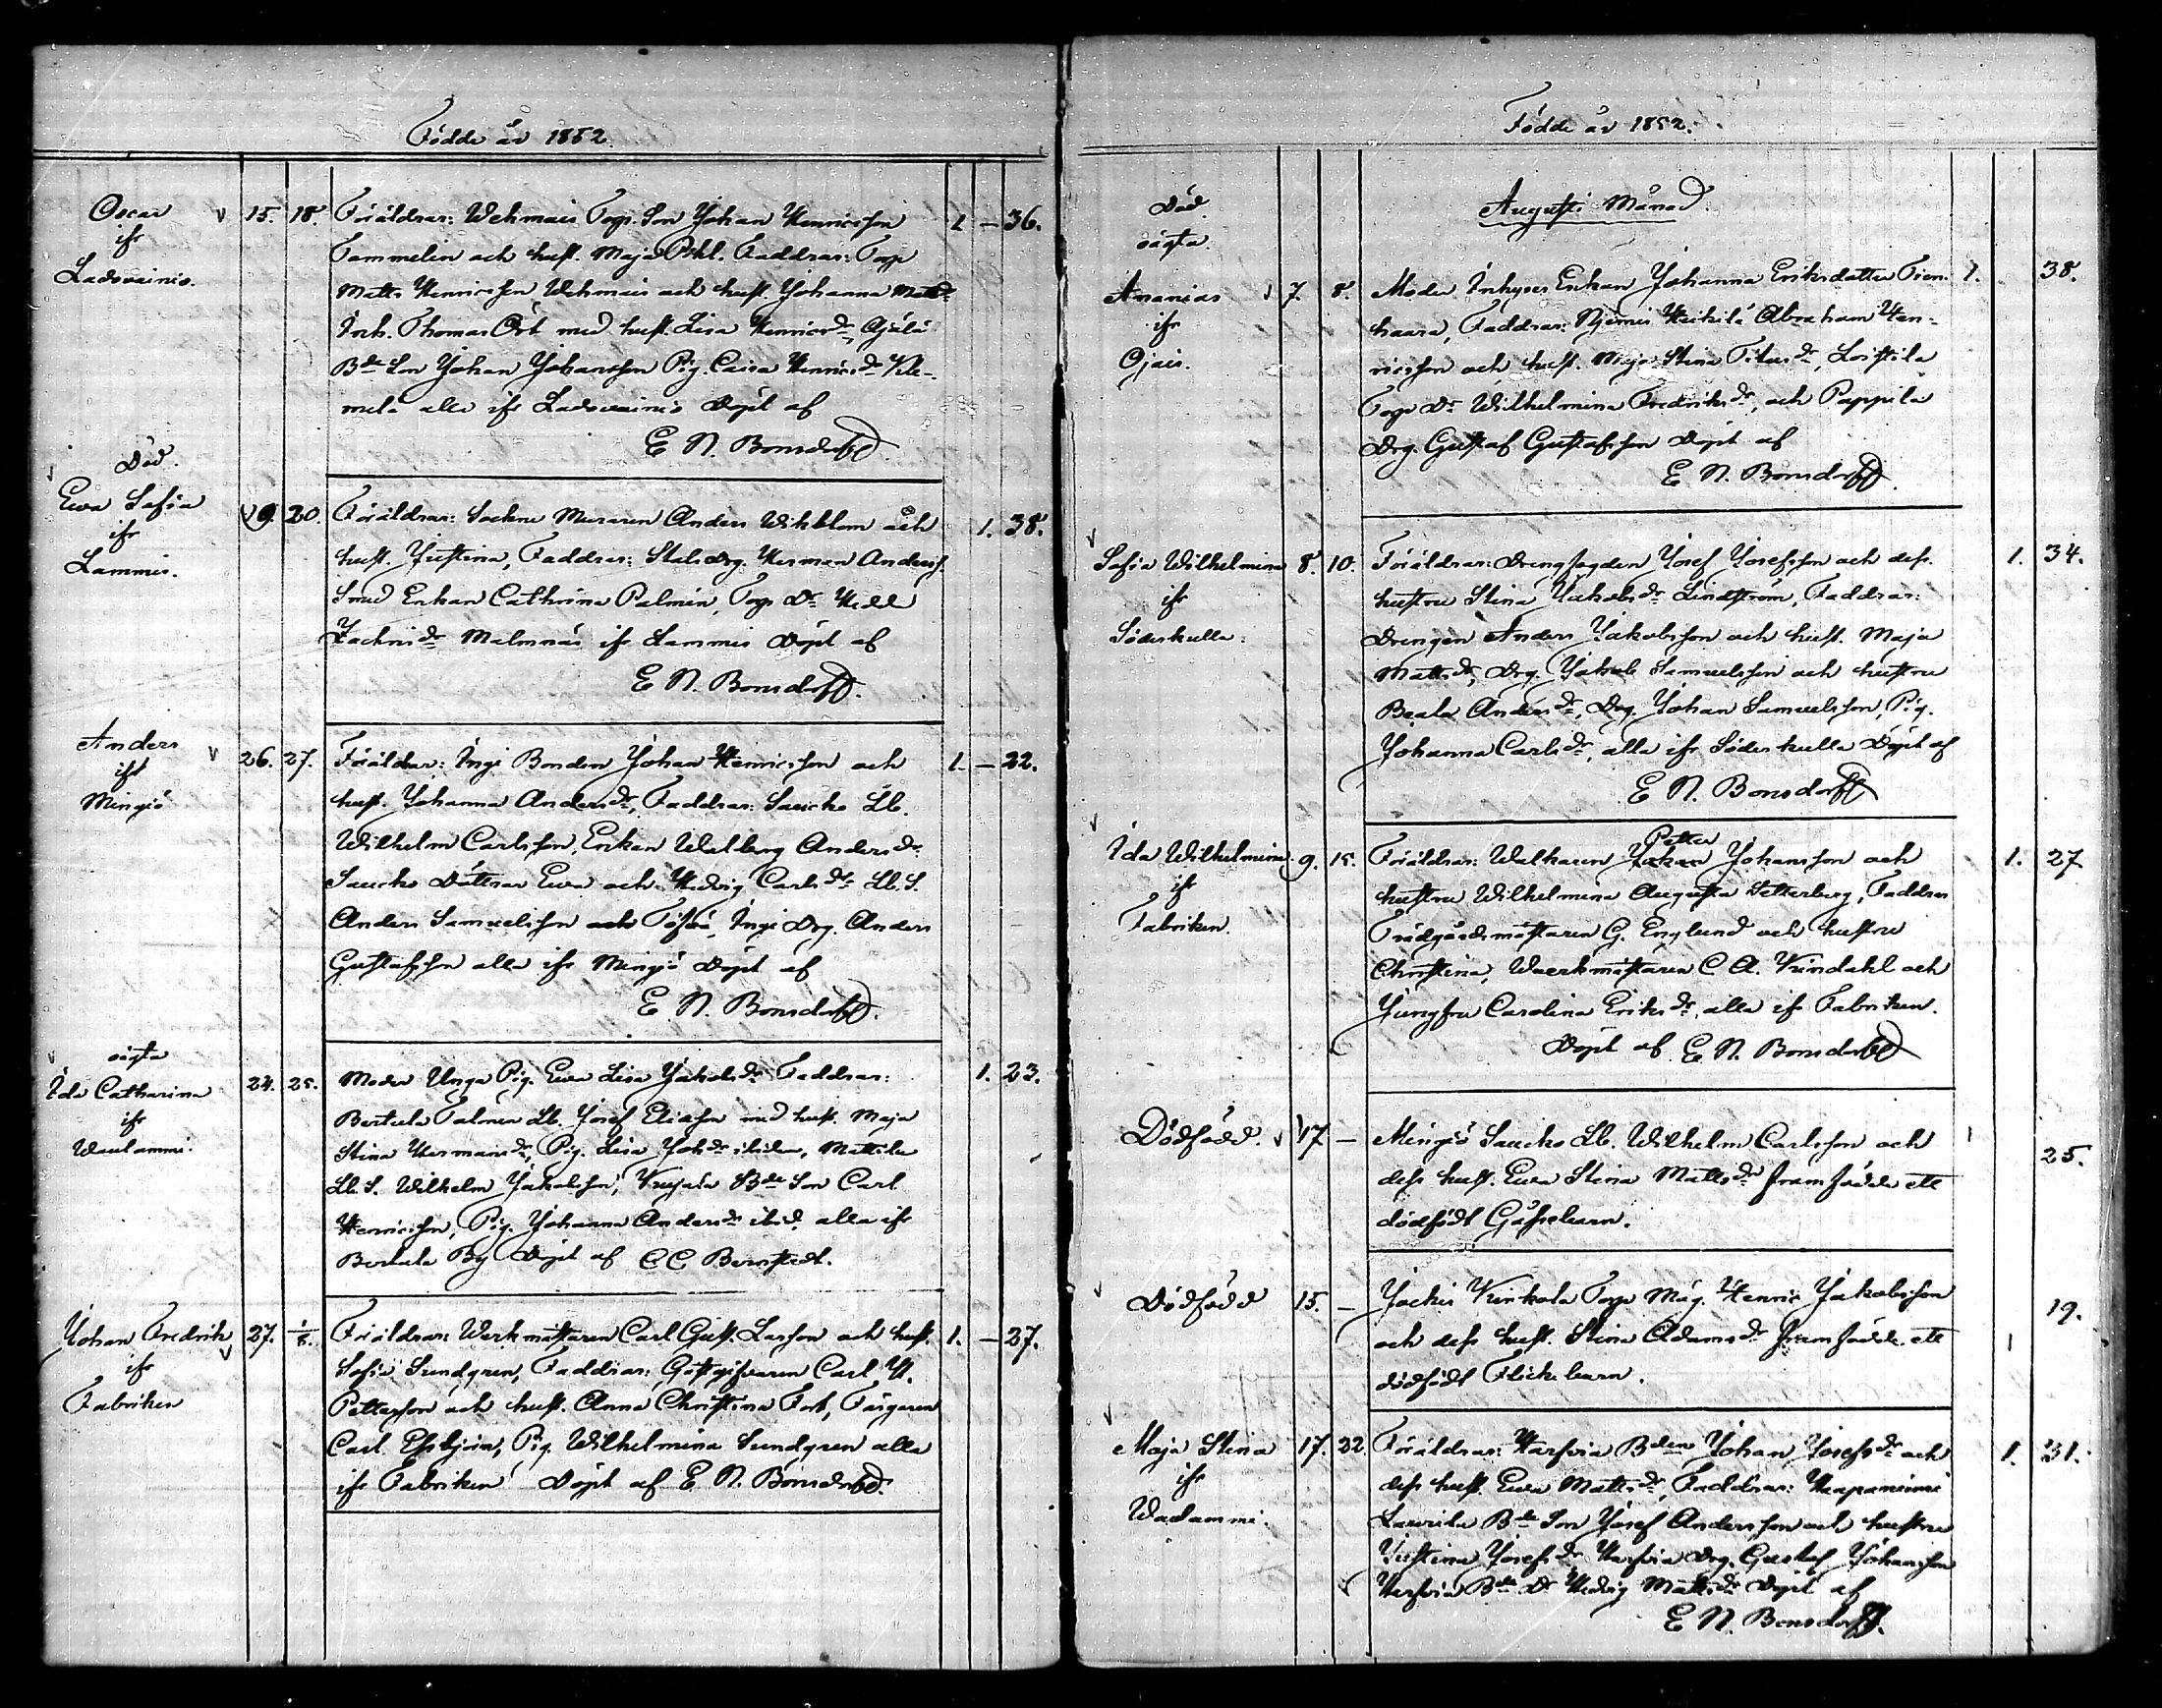 Födde år 1852.
Oscar
ifr
Ladovainio.
15. 18. Föräldrar: Wehmais Torp. Son Johan Henricsson 1 – 36.
Tammelin och hust. Maja Pihl. Faddrar: Torp
Matts Henricsson Wehmais och hust. Johanna Matts
Inh. Thomas Ört med hust. Lisa Henricsdr,
Bde Son Johan Johansson Pig. Caisa Henricsdr
alla ifr Ladovainio Döpt af
E N. Bonsdorff.
Död.
Ewa Sofia
ifr
Lammis.
9. 20. Föräldrar: Sockne Muraren Anders Wikblom och 1. 38.
hust. Justina, Faddrar: Stalldrg. Herman Anderss.
Smed Enkan Cathrina Palmén, Torp Dr Hedd
Zachrisdr Malmnäs ifr Lammis Döpt af
E N. Bonsdorff.
Anders
ifr
Mingiö
26. 27. Föräldrar: Ingi Bonden Johan Henricsson och 1. – 22.
hust. Johanna Andersdr, Faddrar: Saucko Lb.
Wilhelm Carlsson, Enkan Walborg Andersdr
Saucko Döttrar Ewa och Hedvig Carlsdr Lb. S.
Anders Samuelsson och Ingi Drg. Anders
Gustafsson alla ifr Mingiö Döpt af
E. N. Bonsdorff.
oägta
Ida Catharina
ifr
24. 25. Moder Unga Pig. Ewa Lisa Jakobsdr Faddrar: 1. 23.
Bertula Lb. Josef Eliasson med hust. Maja
Stina Hermansdr, Pig. Lisa Johdr ibidem, Mattila
Lb. S. Wilhelm Jakobsson, Bde Son Carl
Henricsson, Pig. Johanna Andersdr ibid. alla ifr
Bertula By Döpt af C C Bernstedt.
Johan Fredrik
ifr
Fabriken
27. 1/8. Föräldrar: Werkmästaren Carl Gust. Larsson och hust. 1. – 27.
Sofia Sundgren, Faddrar: Gästgifvaren Carl H.
Pettersson och hust. Anna Christina Fort, Färgaren
Carl Essbjörn, Pig. Wilhelmina Sundgren alla
ifr Fabriken Döpt af E. N. Bonsdorff.
Födde år 1852.
Augusti Månad.
Död
oägta.
Ananias
ifr
Ojais.
7. 8. Moder Inhyses Enkan Johanna Eriksdotter 1. 38.
haara, Faddrar: Njemis Heikilä Abraham Hen-
ricsson och hust. Maja Stina Titusdr, Loiftila
Torp Dr Wilhelmina Fredriksdr, och Pappila
Drg. Gustaf Gustafsson Döpt af
E N. Bonsdorff.
Sofia Wilhelmina
ifr
Söderkulla.
8. 10. Föräldrar: Drengfogden Josef Josefsson och dess 1. 34.
hustru Stina Jakobsdr Lindström, Faddrar:
Drengen Anders Jakobsson och hust. Maja
Mattsdr, Drg. Jakob Samuelsson och hustru
Beata Andersdr, Drg. Johan Samuelsson, Pig.
Johanna Carlsdr, alla ifr Söderkulla Döpt af
E N. Bonsdorff
Ida Wilhelmina
ifr
Fabriken.
Petter
9. 15. Föräldrar: Walkaren Johan Johansson och 1. 27
hustru Wilhelmina Augusta Setterberg, Faddrar
Trädgårdsmästaren G. Englund och hustru
Christina, Werkmästaren C A. Krindahl och
Jungfru Carolina Eriksdr, alla ifr Fabriken.
Döpt af E N. Bonsdorff
Dödfödd. 17 – Mingiö Saucko Lb. Wilhelm Carlsson och 1 25.
dess hust. Ewa Stina Mattsdr framfödde ett
dödfödt Gossebarn.
Dödfödd 15. – Jockis Kirkola Torp Måg. Henric Jakobsson 19.
och dess hust. Stina Adamsdr framfödde ett 1
dödfödt Flickebarn.
Maja Stina
ifr
Wadammi.
17. 22 Föräldrar: Harfvia Bden Johan Josefsdr och 1. 31.
dess hust. Ewa Mattsdr, Faddrar: Haapaniemi
Laurila Bde Son Josef Andersson och hustru
Justina Josefsdr Harfvia Drg. Gustaf Johansson
Harfvia Bde Dr Hedvig Mattsdr Döpt af
E N. Bonsdorff.